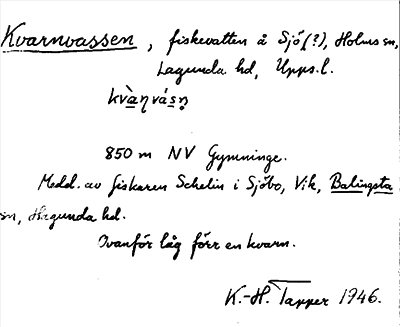 Kvarnvassen, fiskevatten å Sjö(?), Holms sn,
Lagunda hd, Upps. l.
kvàηvásṇ
850 m NV Gymninge.
Medd. av fiskaren Schelin i Sjöbo, Vik, Balingsta
sn, Hagunda hd.
Ovanför låg förr en kvarn.
K.-H. Tapper 1946.